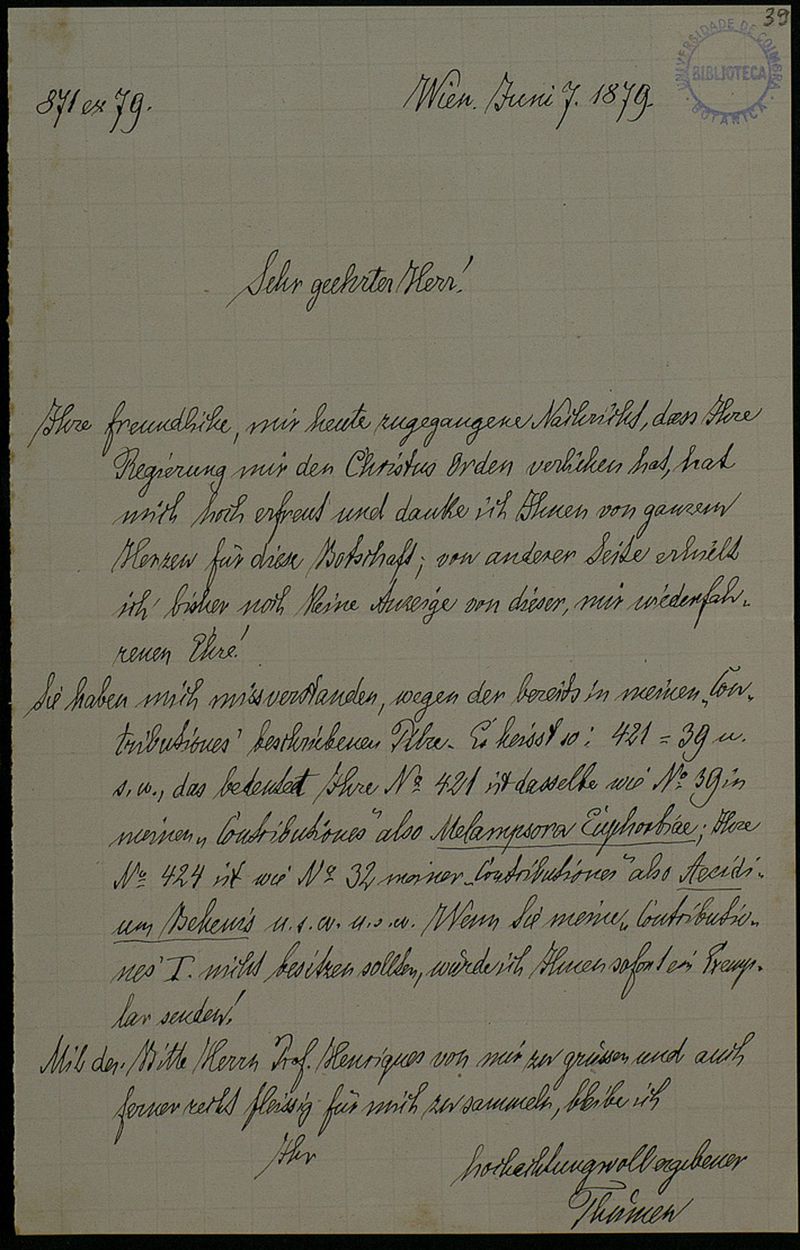 39
UNIVERSIDADE DE COIMBRA
BIBLIOTECA
BOTANICA
871 ex 79.
Wien. Juni 7. 1879.
Sehr geehrter Herr!
Ihre freundliche, mir heute zugegangene Nachricht, dass Ihre
Regierung mir den Christus Orden verliehen hat, hat
mich hoch erfreut und danke ich Ihnen von ganzem
Herzen für diese Botschaft; von anderer Seite erhielt
ich bisher noch keine Anzeige von dieser, mir wiederfah-
renen Ehre!
Sie haben mich missverstanden, wegen der bereits in meinen „Con-
tributiones" beschriebenen Pilze. Es heisst so: 421 = 39 u.
s. w., das bedeutet Ihre No 421 ist dasselbe wie No 39 in
meinen „Contributiones" also Melampsora Euphorbiae; Ihre
No 424 ist wie No 32 meiner „Contributiones" also Aecidi-
um Behenis u. s. w. u. s. w. Wenn Sie meine „Contributio-
nes" I. nicht besitzen sollten, würde ich Ihnen sofort ein Exemp-
lar senden!
Mit der Bitte Herrn Prof. Henriques von mir zu grüssen und auch
ferner recht fleissig für mich zu sammeln, bleibe ich
Ihr
hochachtungsvoll ergebener
Thümen